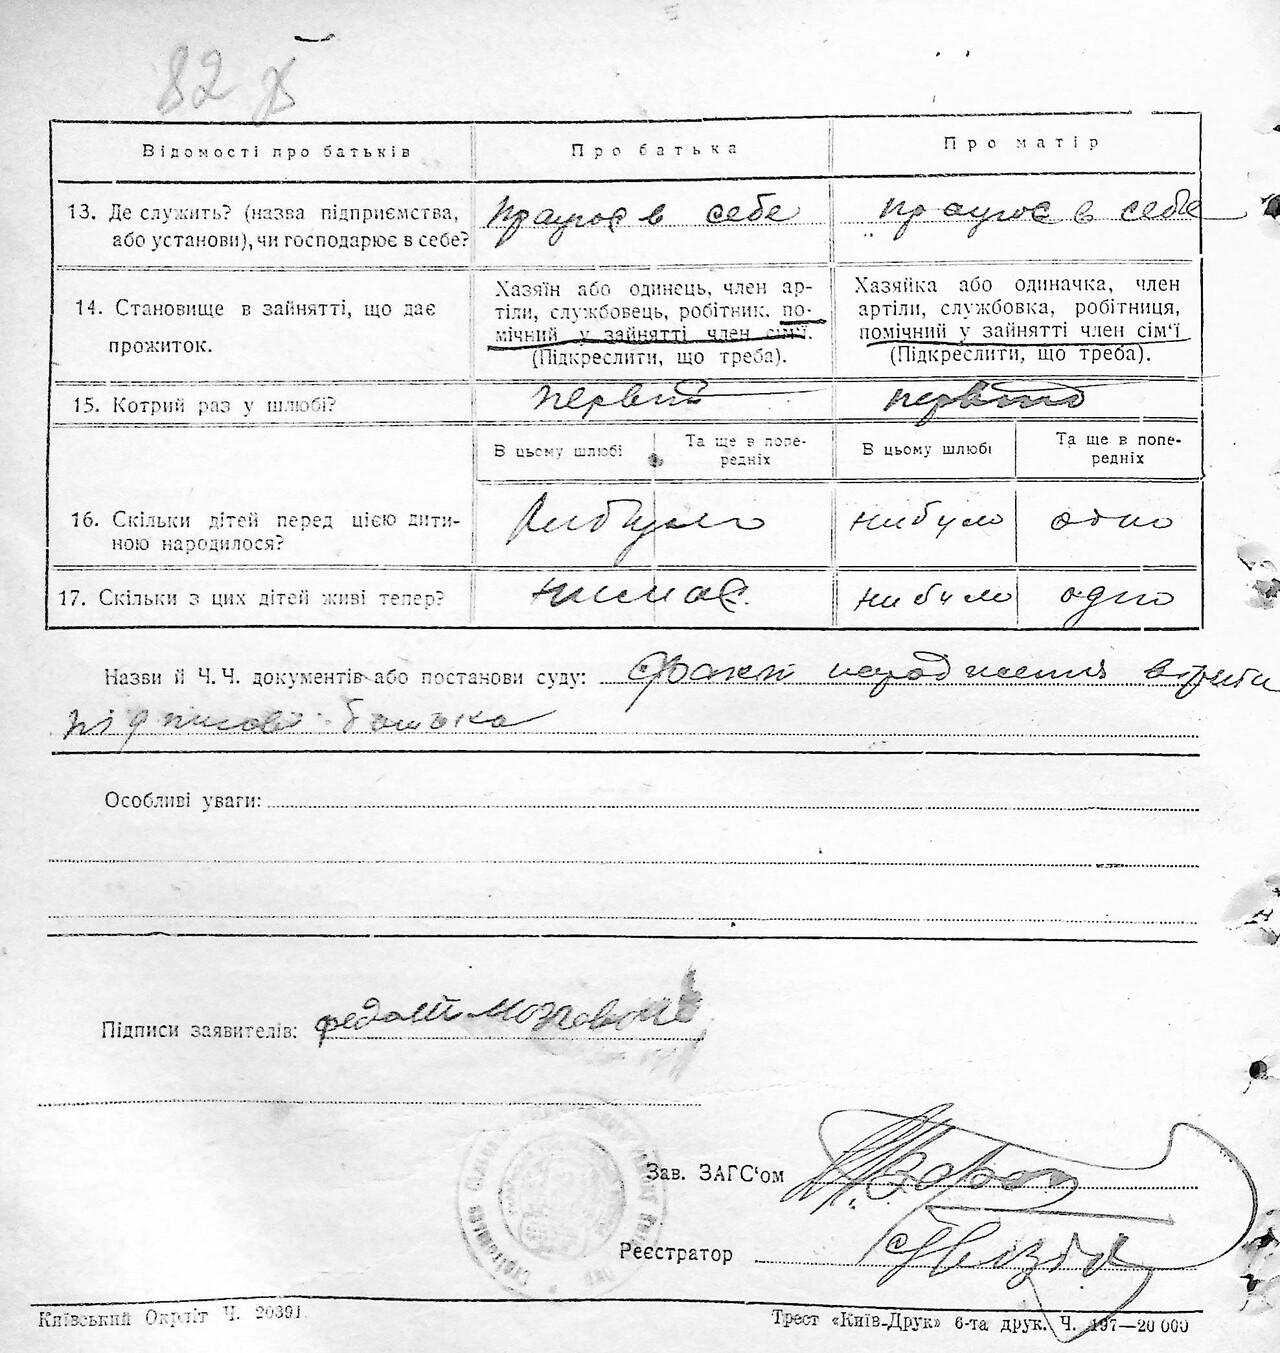 82
Відомості про батьків
Про батька
Про матір
13. Де служить? (назва підприємства, або установи), чи господарює в себе?
працює в себе
працює в себе
14. Становище в зайнятті, що дає прожиток.
Хазяїн або одинець, член ар-
тіли, службовець, робітник, по-
мічний у зайнятті член сім'ї.
(Підкреслити, що треба).
Хазяйка або одиначка, член
артіли, службовка, робітниця,
помічний у зайнятті член сім'ї
(Підкреслити, що треба).
15. Котрий раз у шлюбі?
первий
В цьому шлюбі
Та ще в попе-
редніх
В цьому шлюбі
Та ще в попе-
редніх
16. Скільки дітей перед цією дити-
ною народилося?
нибуло
нибуло
одно
17. Скільки з цих дітей живі тепер?
нимає
нибуло
одно
Назви й Ч.Ч. документів або постанови суду: народження
батька
Особливі уваги:
Підписи заявителів: федот
Зав. ЗАГС'ом
Реєстратор
Київський Окрліт Ч. 20391.
Трест «Київ-Друк» 6-та друк. Ч. 197—20 000